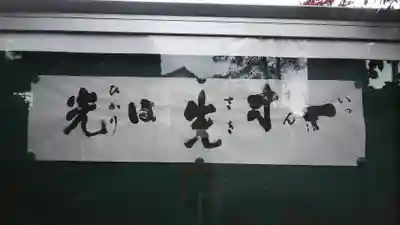 一寸先は光
いっすんさきひかり